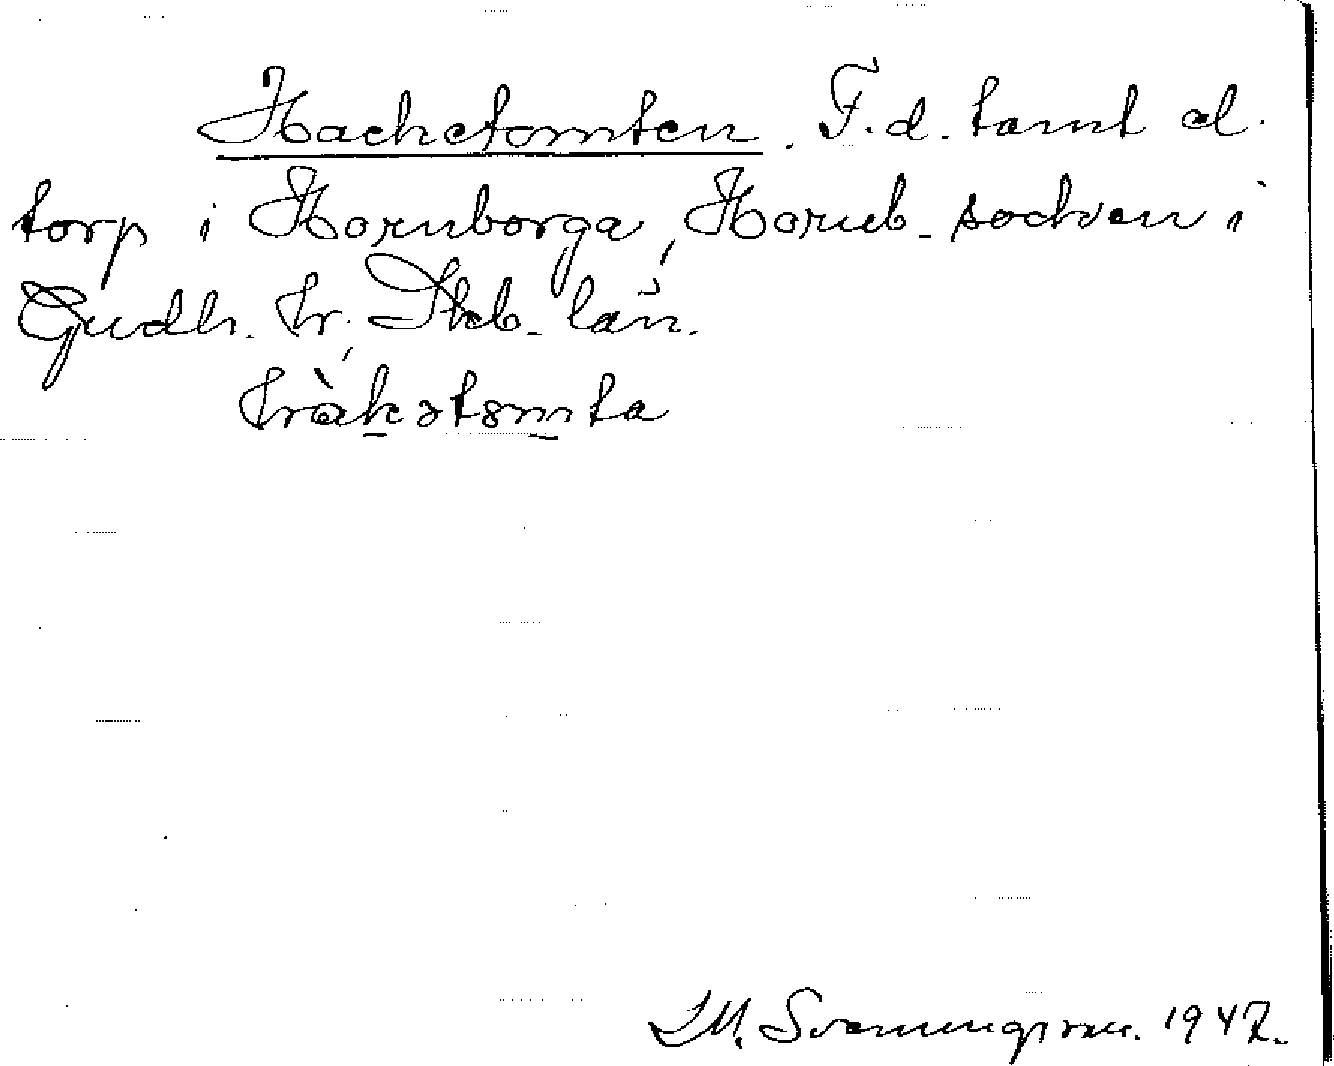 Hacketomten. F.d. tomt el.
torp i Hornborga, Hornb. socken i
Gudh. hr, Skb. län.
hràkətomta
Svenningsson. 1947.